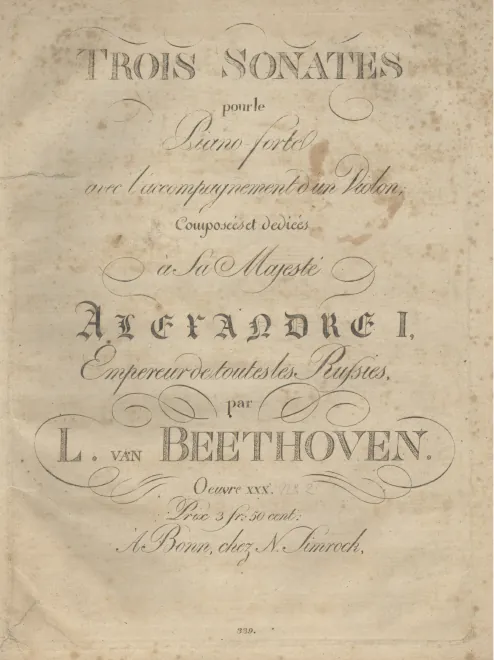 TROIS SONATES
pour le
Piano-forte
avec l'accompagnement d'un Violon,
Composées et dediées
à Sa Majesté
ALEXANDRE I,
Empereur de toutes les Russies,
par
L. VAN BEETHOVEN.
Oeuvre XXX. № 2
Prix 3 fr: 50 cent:
A Bonn, chez N. Simrock,
229.